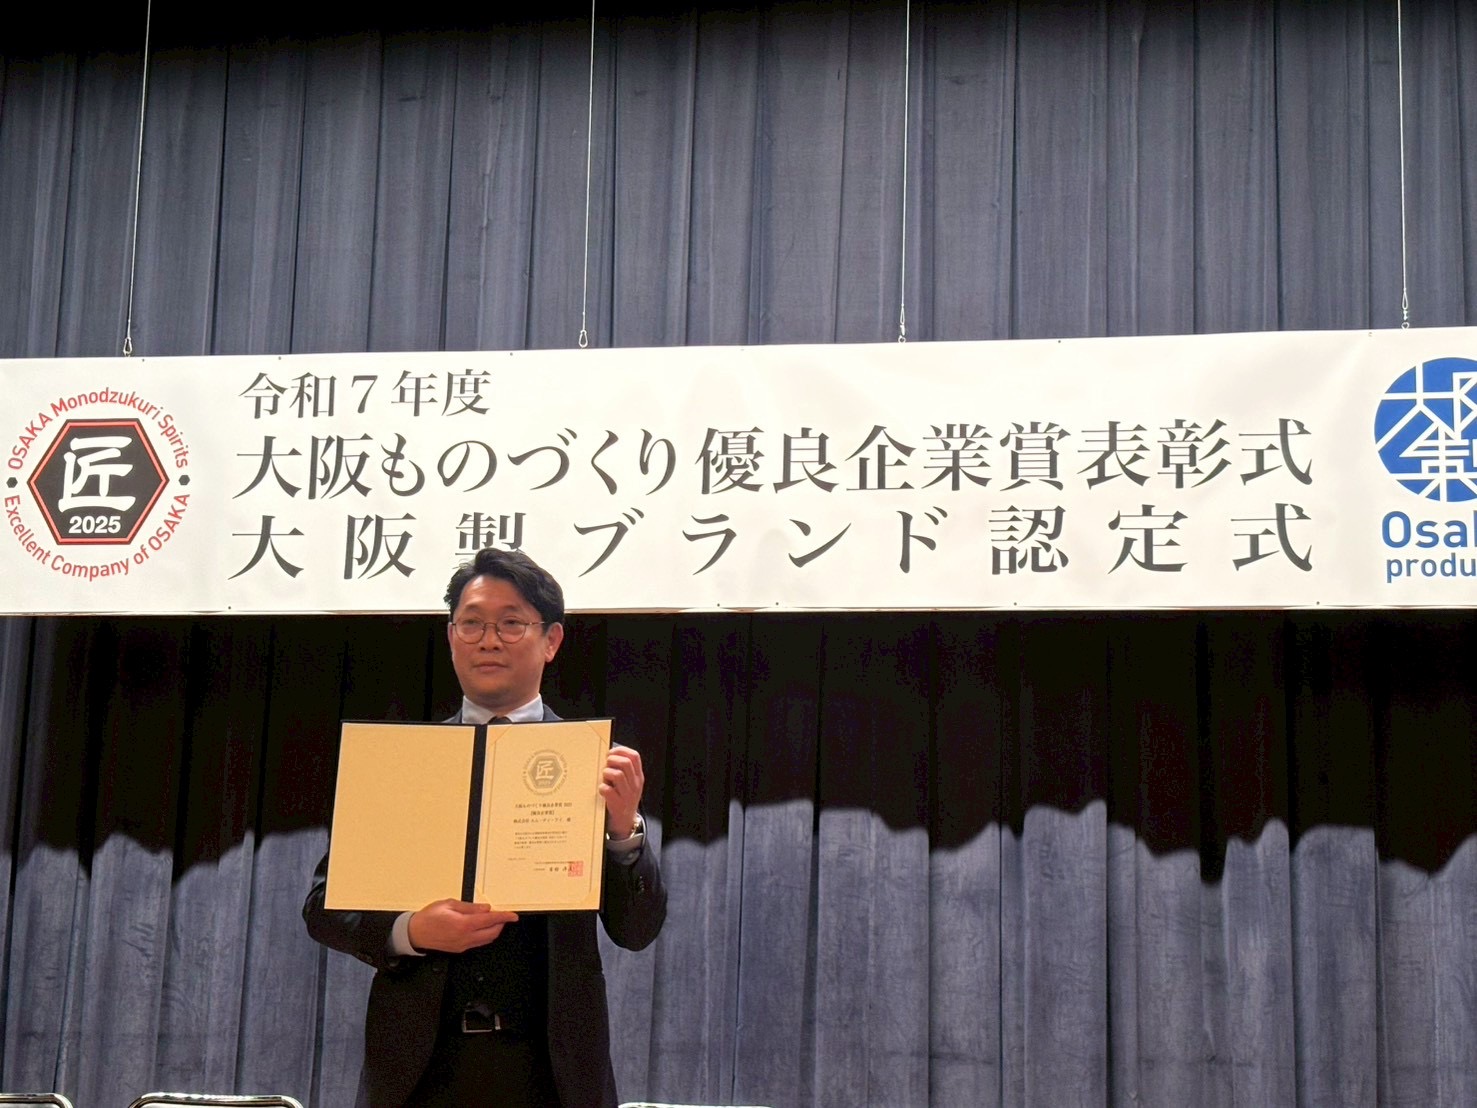 OSAKA Monodzukuri Spirits
匠
2025
Excellent Company of OSAKA
令和7年度
大阪ものづくり優良企業賞表彰式
大阪製ブランド認定式
大阪製
Osa
produ
匠
大阪ものづくり優良企業賞 2025